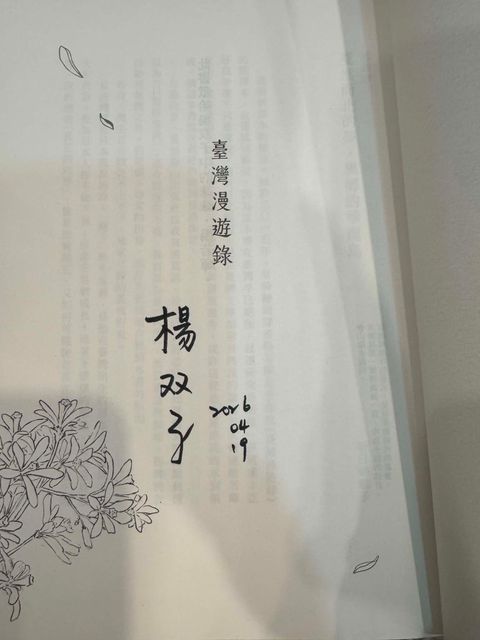 臺灣漫遊錄
楊双子
2026
04
19